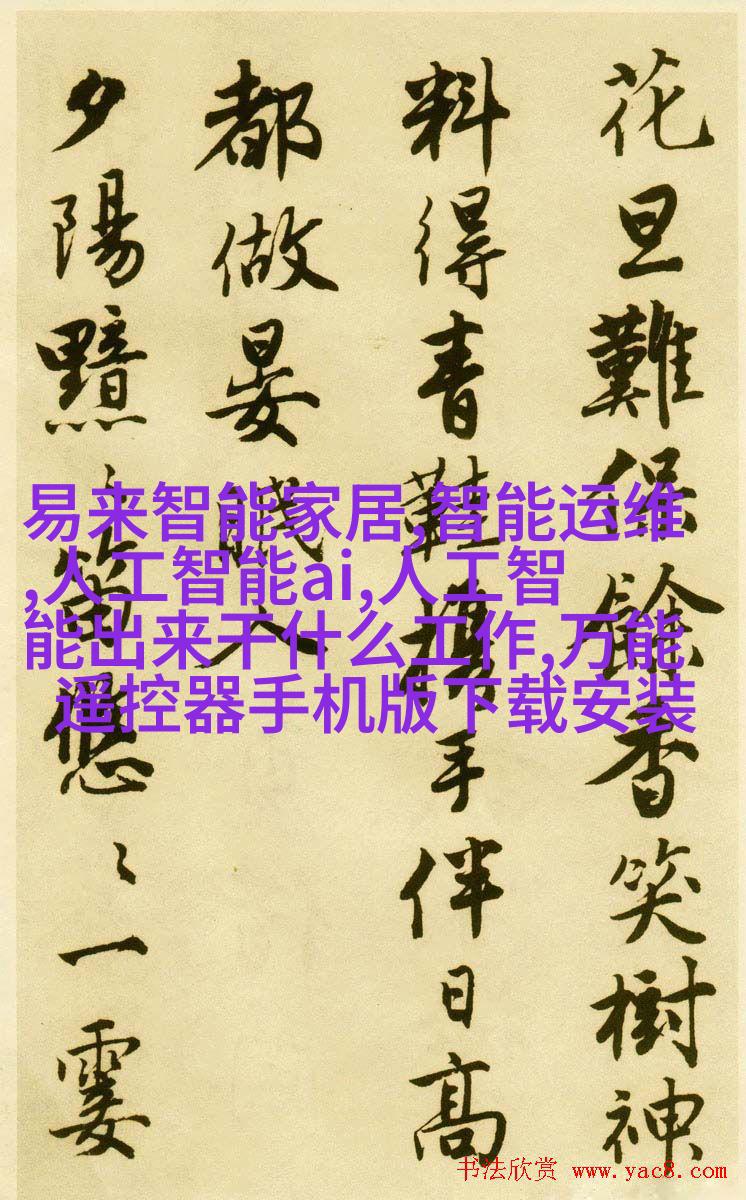 花旦難保餘香笑樹神
料得青鞋携手伴日高
都做晏眠人
夕陽黯〻笛悠〻一霎
易来智能家居,智能运维
,人工智能ai,人工智
能出来干什么工作,万能
遥控器手机版下载安装
书法欣赏 www.yac8.com